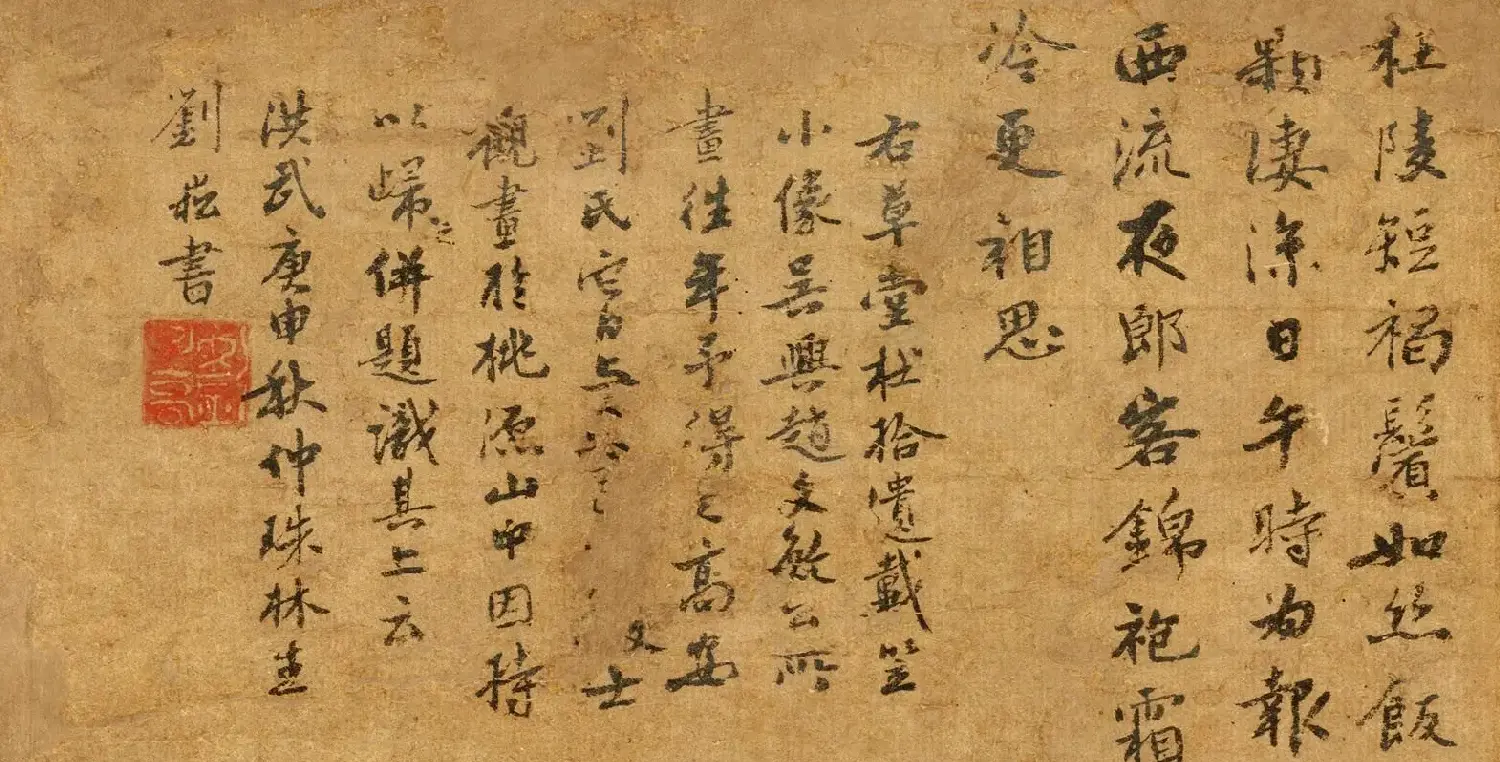 杜陵短褐鬢如丝飯
顆淒深日午時为報
西流夜郎客錦袍霜
冷更相思
右草堂杜拾遺戴笠
小像吴興趙文敏公所
畫往年予得之高安
劉氏 文士
觀畫於桃源山中因持
以歸之併題識其上云
洪武庚申秋仲珠林生
劉崧書